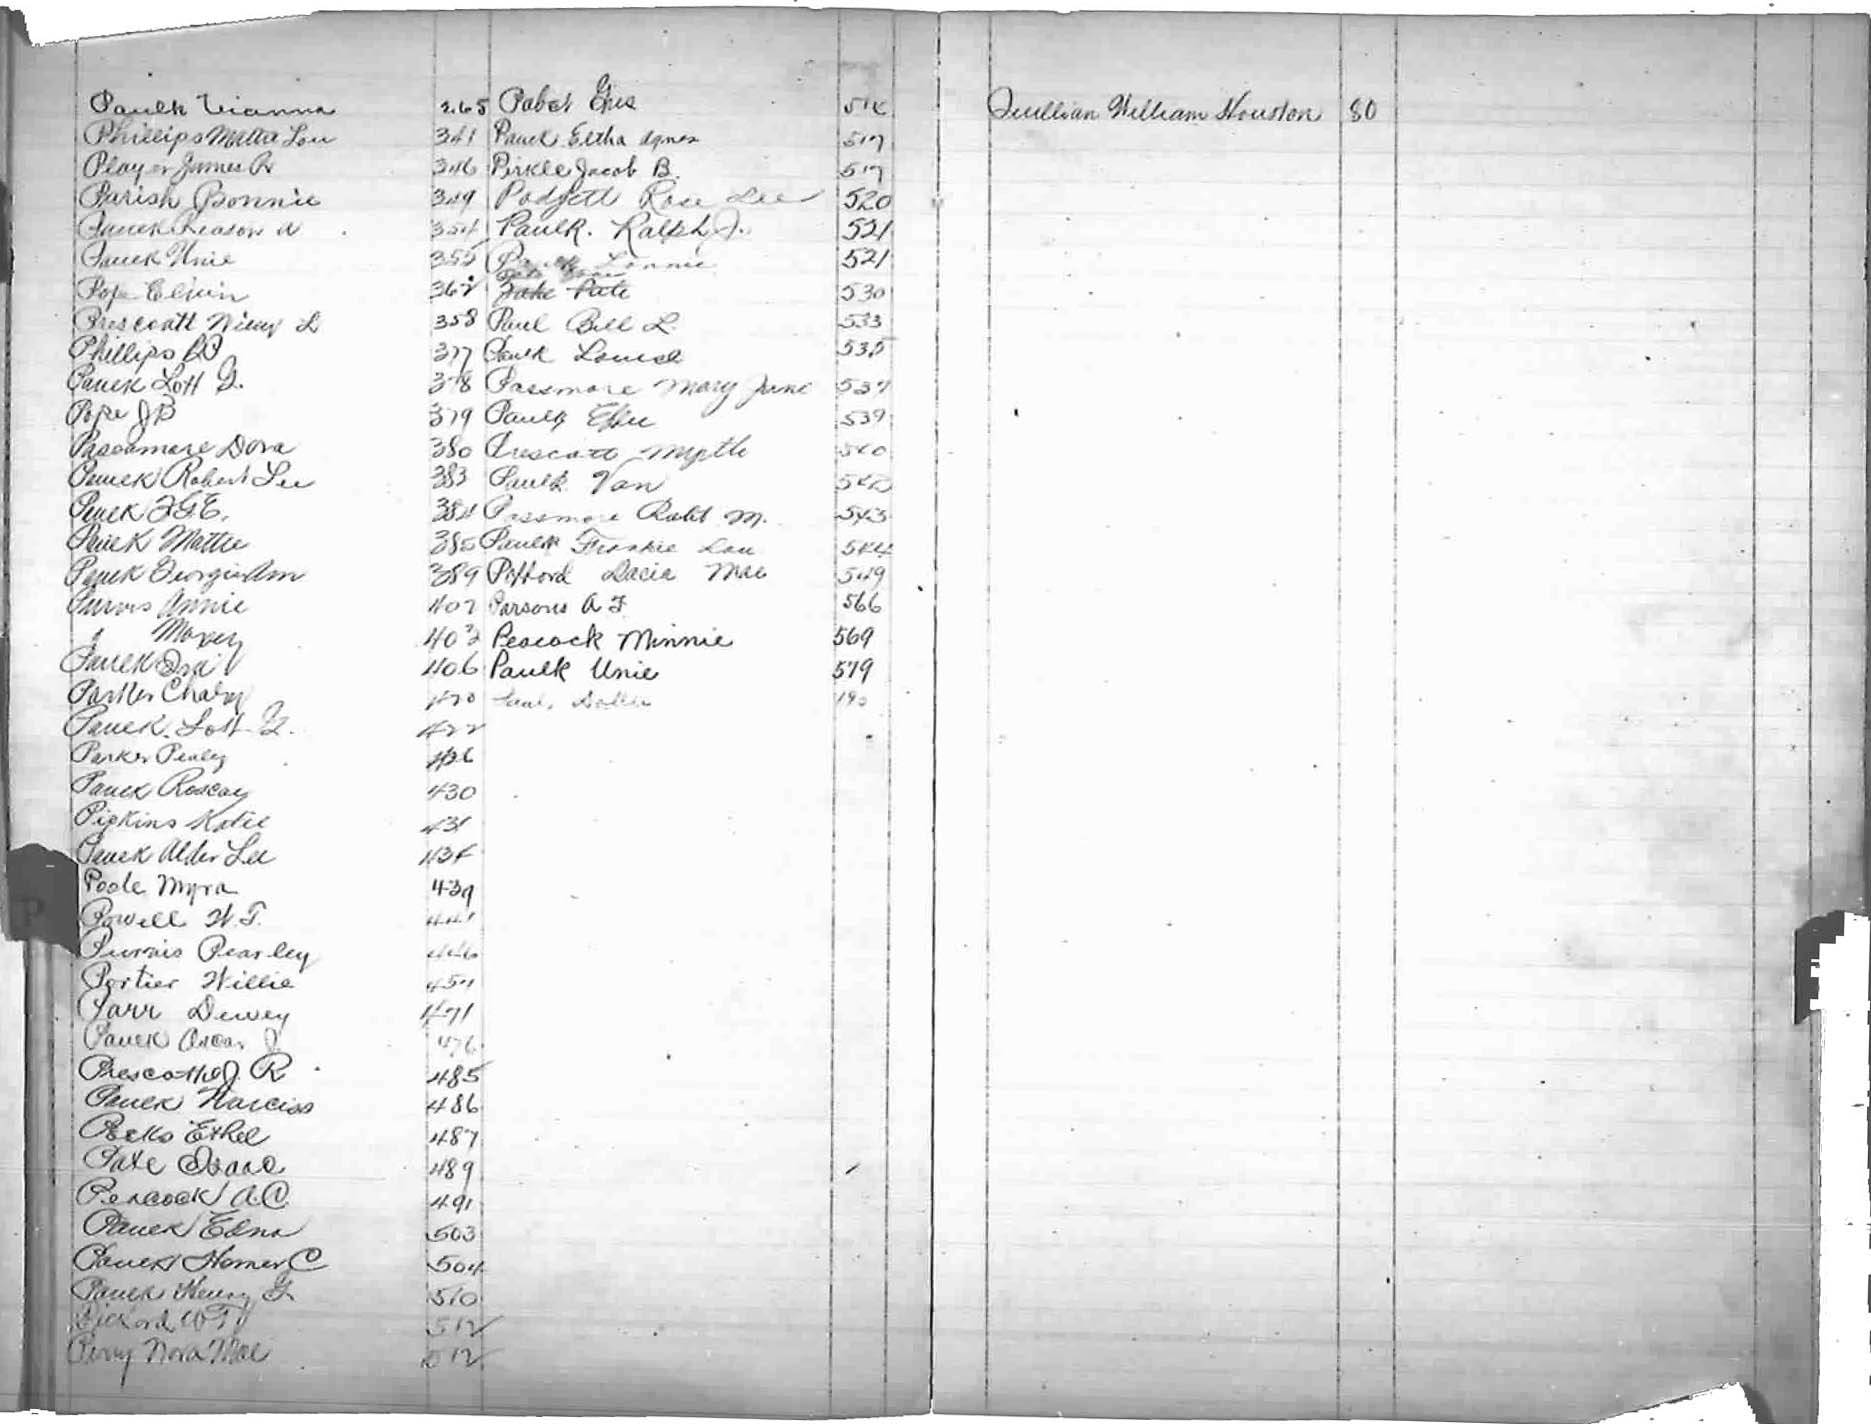 Paulk Vianna 265
Phillips Mattie Lou 341
Player James R 346
Parish Bonnie 349
Paulk Reason A 354
Paulk Unie 355
Pope Eljin 362
Prescoatt Wiley L 358
Phillips 377
Paulk Lott G. 378
Pope J B 379
Passmore Dora 380
Paulk Robert Lee 383
Paulk 384
Paulk Mattie 385
Paulk Georgie Ann 389
Purvis Annie 402
Maxey 403
Paulk Ira 406
Parker Charly 420
Paulk Lott G. 422
Parker Pealey 426
Paulk Roscoe 430
Pipkins Katie 431
Paulk Alder Lee 434
Poole Myra 439
Powell W. T. 441
Purvis Pearley 446
Portier Willie
Parr Dewey 471
Paulk Oscar J 476
Prescott J. R 485
Paulk Narciss 486
Ethel 487
Pate Isaac 489
Peacock A. C. 491
Paulk Edna 503
Paulk Homer C 504
Paulk Henry G. 510
W T 512
Perry Nora Mae 512
Pabst Gus
Paulk Eltha Agnes 517
Pirkle Jacob B. 517
Padgett Rose Lee 520
Paulk. Ralph J. 521
Paulk Lonnie 521
Jake Pate 530
Paul Bill L. 533
Paulk Louise 535
Passmore Mary Jane 537
Paulk Effie 539
Prescott Myrtle 540
Paulk Van 542
Passmore Robt M. 543
Paulk Frankie Lou 544
Pofford Dacia Mae 549
Parsons A F 566
Peacock Minnie 569
Paulk Unie 579
Quillian William Houston 80
P